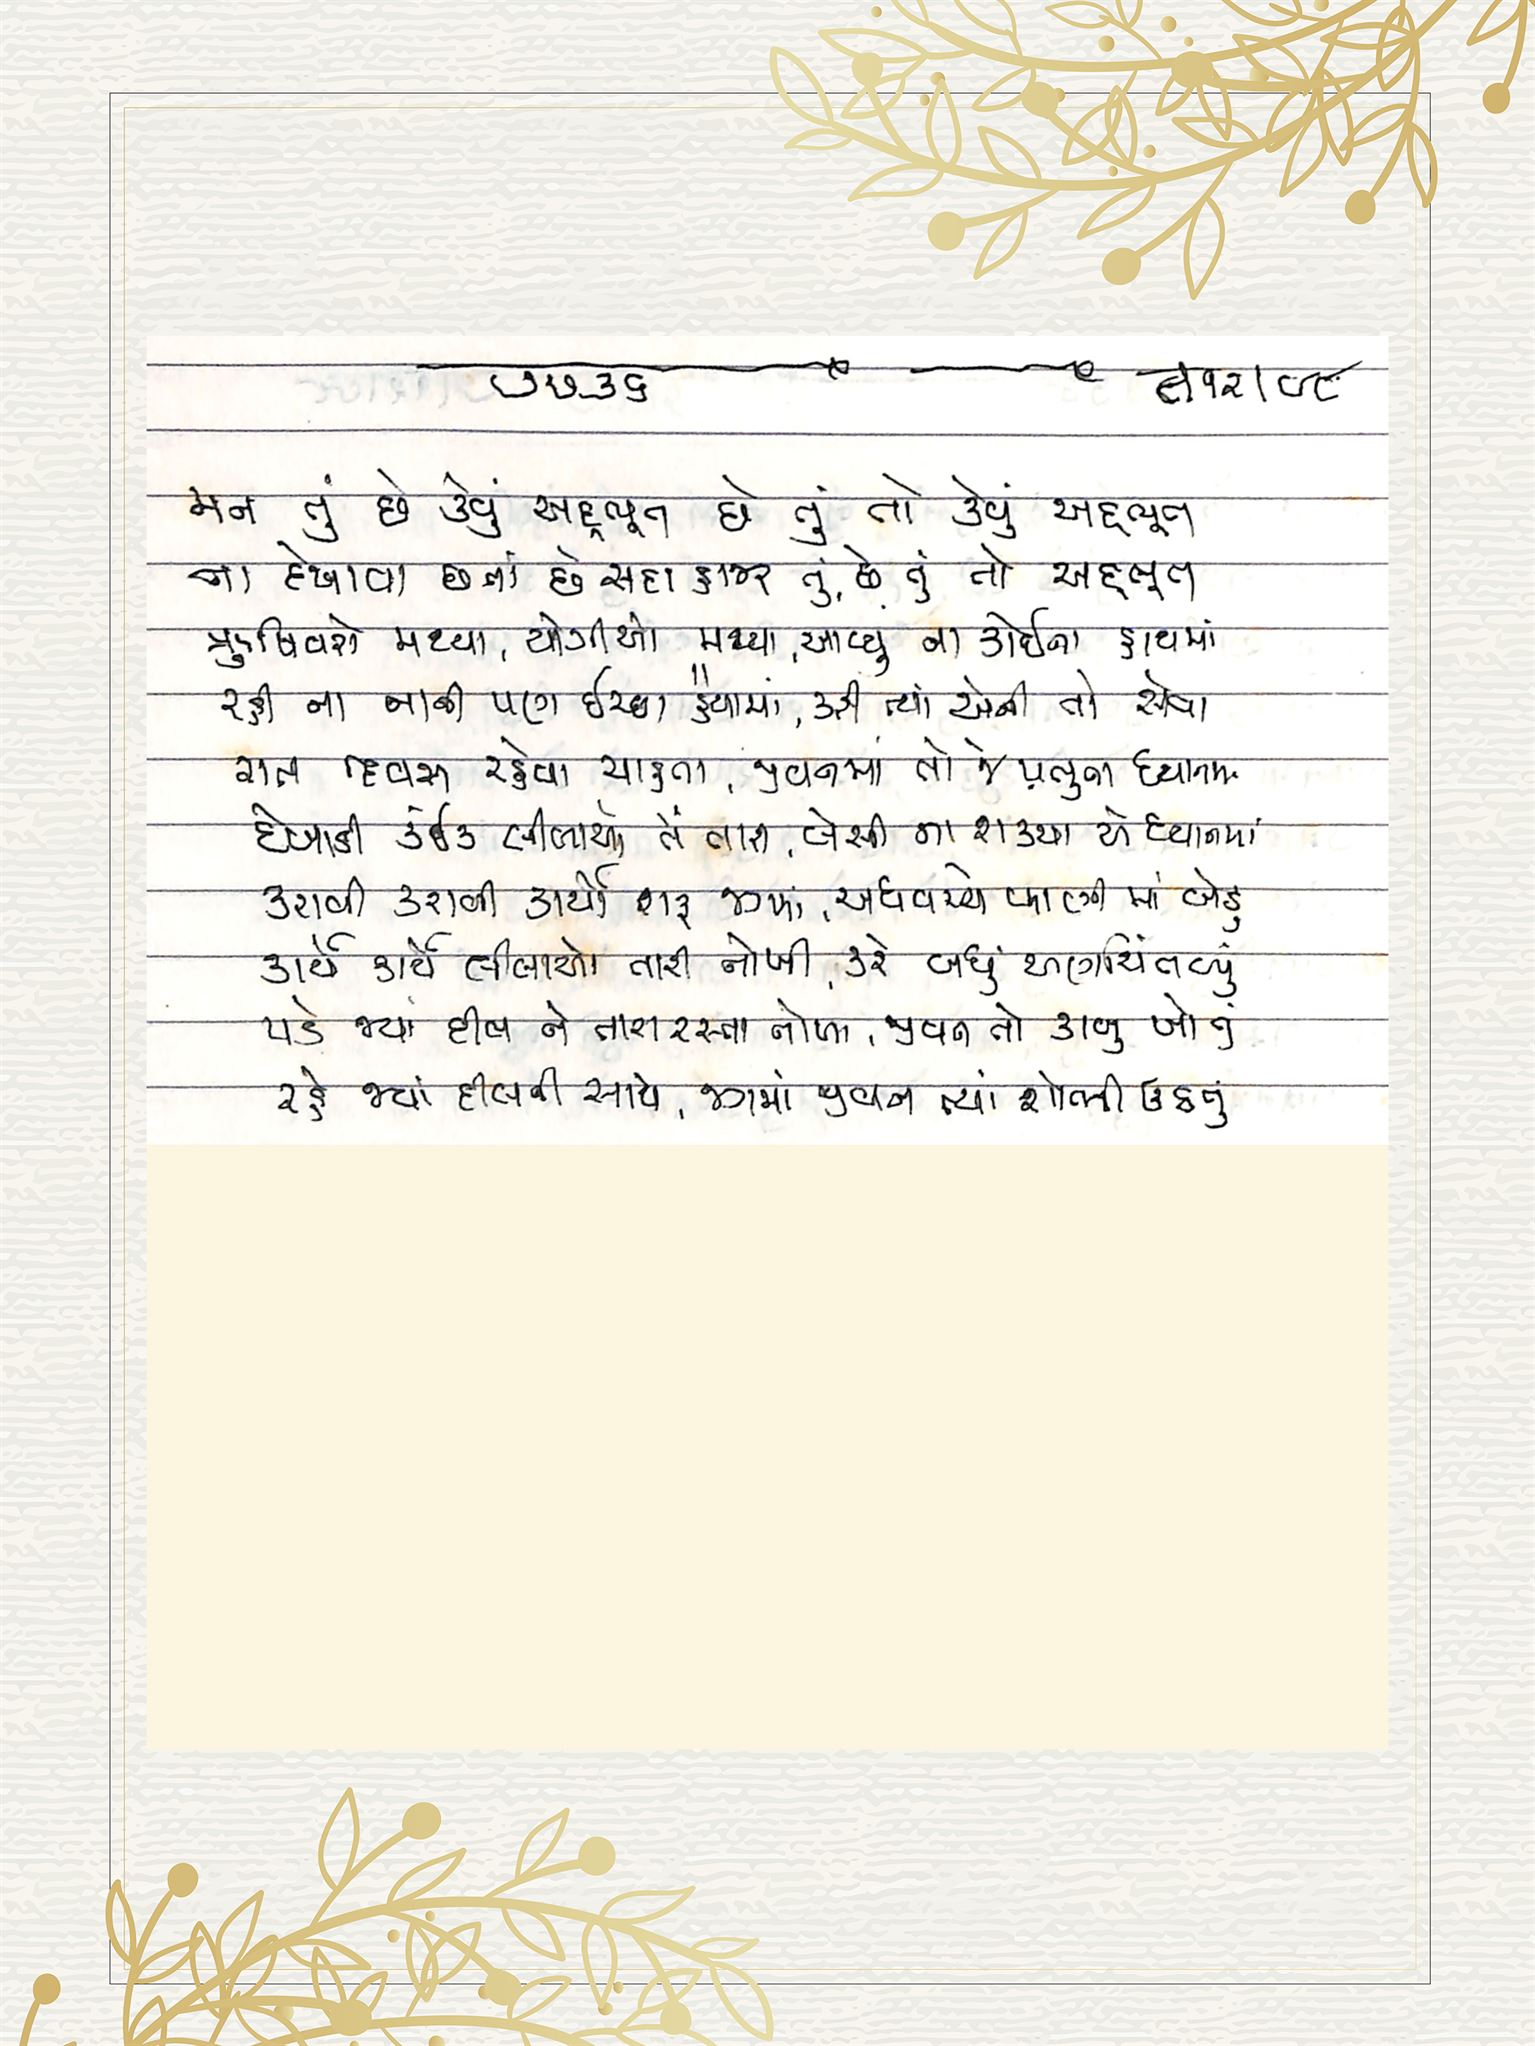 ૭૭૩૬ ૯।૧૨।૯૮
મન તું છે કેવું અદ્દભૂત છે તું તો કેવું અદ્દભૂત
ના દેખાવા છતાં છે સદા હાજર તું, છે તું તો અદ્દભૂત
ઋષિવરો મથ્યા, યોગીઓ મથ્યા, આવ્યું ના કોઈના હાથમાં
રહી ના બાકી પણ ઈચ્છા હૈયામાં, કરી ત્યાં એની તો સેવા
રાત દિવસ રહેવા ચાહતા, જીવનમાં તો જે પ્રભુના ધ્યાનમાં
દેખાડી કંઈક લીલાઓ તેં તારી, બેસી ના શક્યા એ ધ્યાનમાં
કરાવી કરાવી કાર્યો શરૂ જગમાં, અધવચ્ચે પાણીમાં બેઠું
કાર્યે કાર્યે લીલાઓ તારી નોખી, કરે બધું અણચિંતવ્યું
પડે જ્યાં દીલ ને તારા રસ્તા નોખા, જીવન તો કાબુ ખોતું
રહે જ્યાં દીલની સાથે, જગમાં જીવન ત્યાં શોભી ઉઠતું